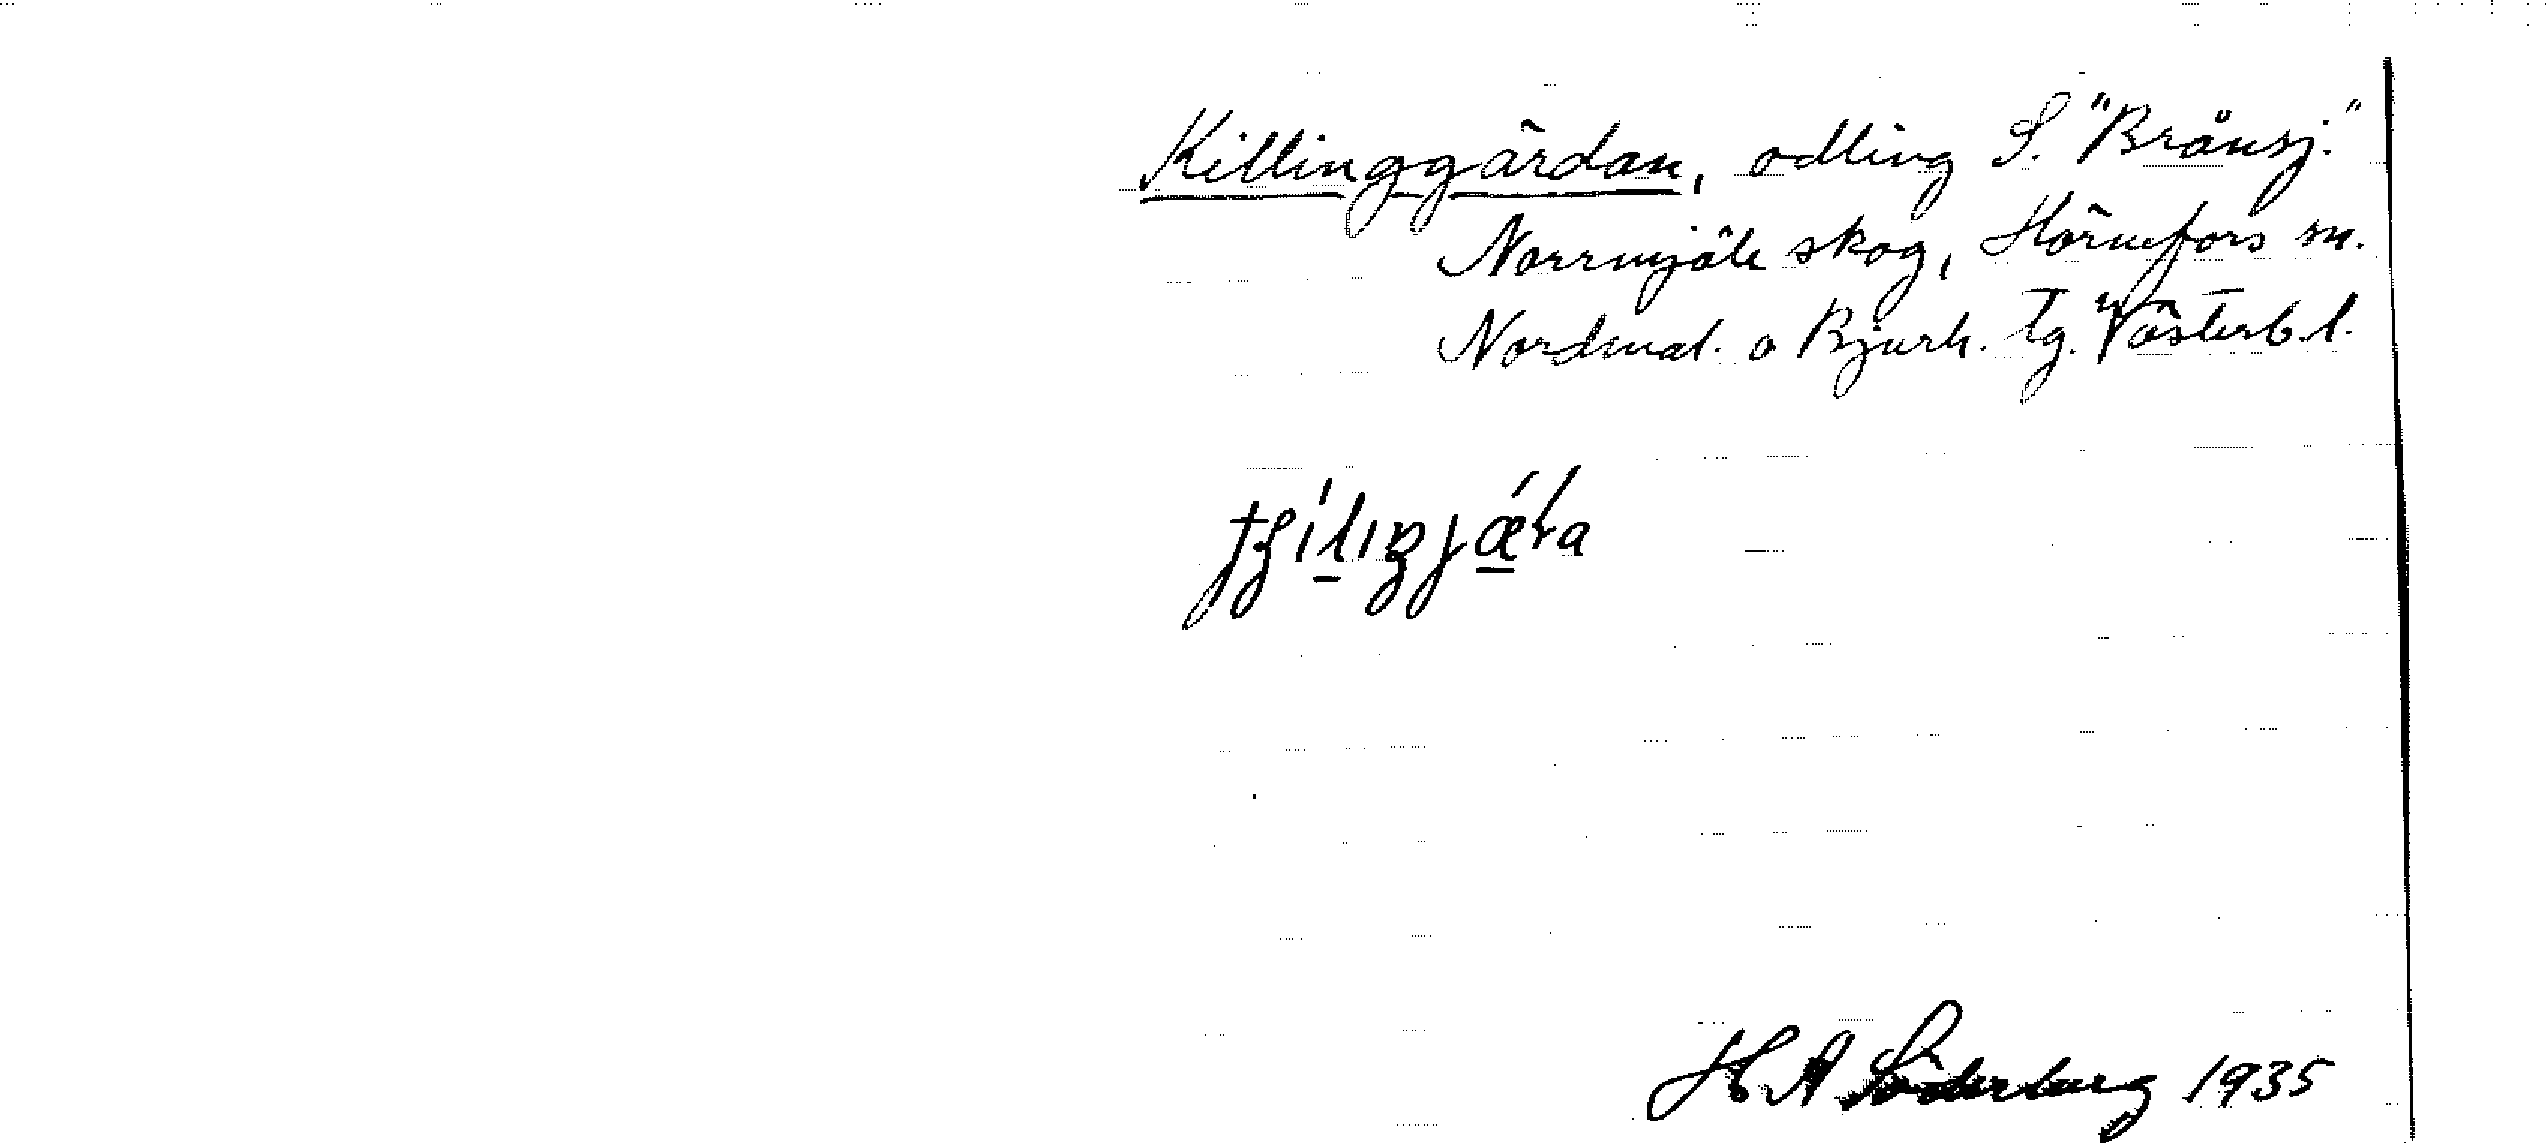 Killinggärdan, odling S. "Brånsj."
Norrmjöle skog, Hörnefors sn.
Nordmal. o Bjurh. Tg. Västerb. l.
H A Söderberg 1935